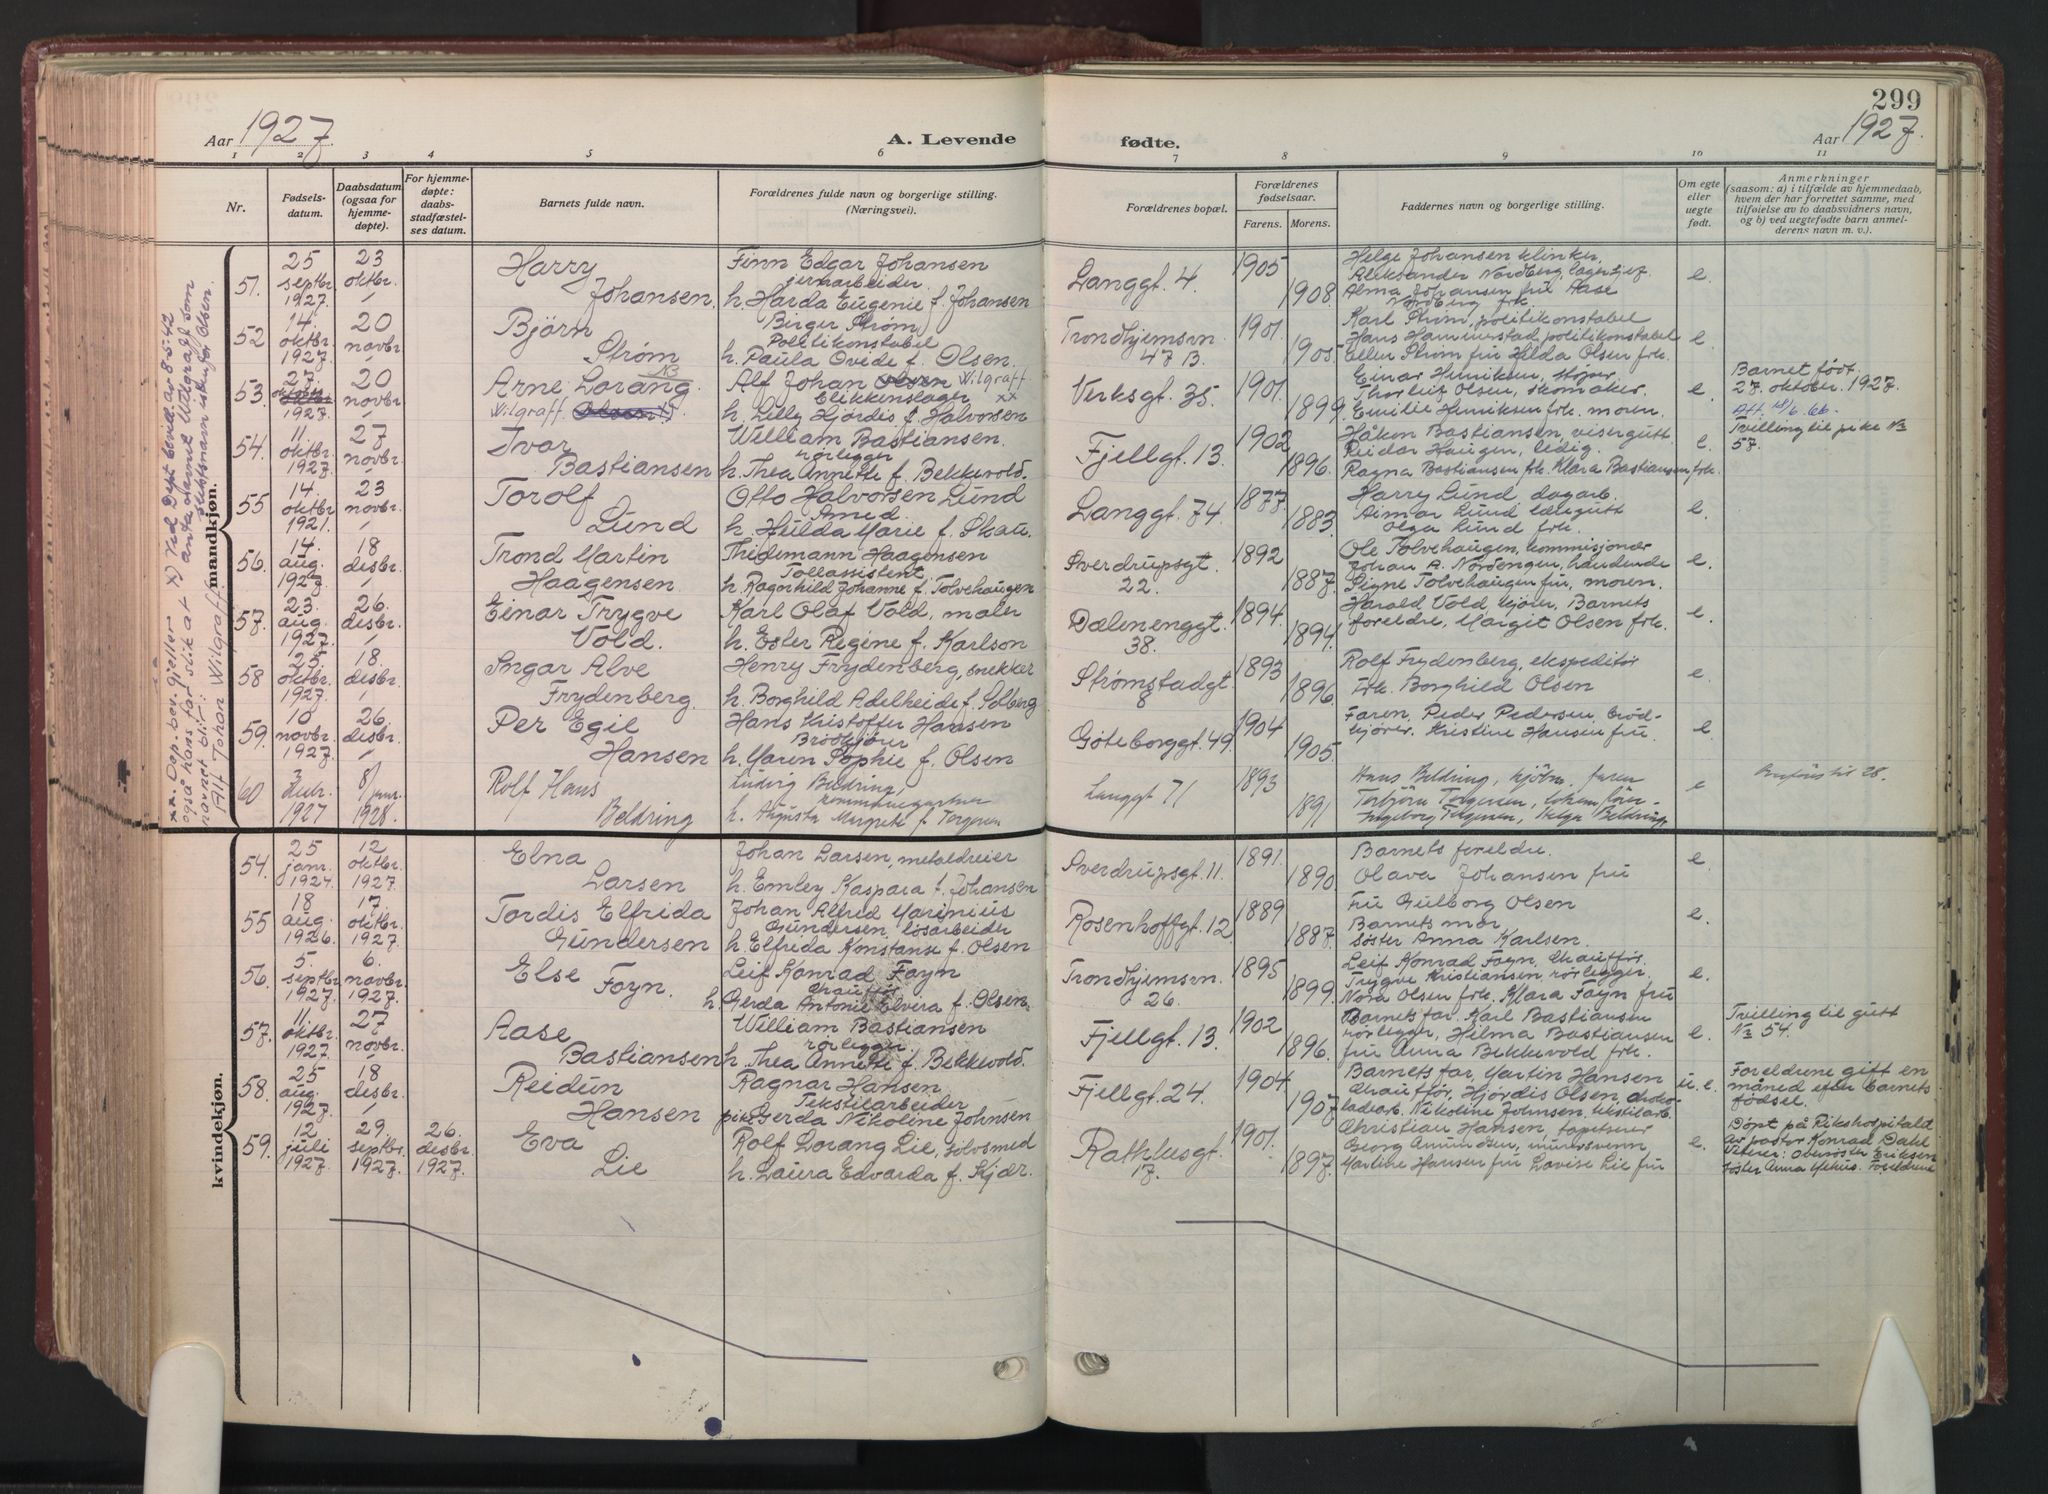 299
Aar 1927.
A. Levende
fødte.
Aar 1927.
1 2 3 4 5 6 7 8 9 10 11
Nr.
Fødsels-
datum.
Daabsdatum
(ogsaa for
hjemme-
døpte).
For hjemme-
døpte:
daabs-
stadfæstel-
ses datum.
Barnets fulde navn.
Forældrenes fulde navn og borgerlige stilling.
(Næringsvei).
Forældrenes bopæl.
Forældrenes
fødselsaar.
Farens.
Morens.
Faddernes navn og borgerlige stilling.
Om egte
eller
uegte
født.
Anmerkninger
(saasom: a) i tilfælde av hjemmedaab,
hvem der har forrettet samme, med
tilføielse av to daabsvidners navn,
og b) ved uegtefødte barn anmel-
derens navn m. v.).
mandkjøn.
X) Ved Dept bevill. av 8-5-42
antar barnet Wilgraff som
slektsnavn istedenfor Olsen.
xx. Dep. bev. gjelder
også hans far slik at
navnet blir:
Alf Johan Wilgraff
51. 25 septbr. 1927. 23 oktbr. /
Harry
Johansen.
Finn Edgar Johansen
jernarbeider.
h. Harda Eugenie f. Johansen
Langgt. 4. 1905 1908
Helge Johansen klinker.
Aleksander Nordberg, lagersjef.
Alma Johansen fru Aase
Nordberg frk.
e.
52 14. oktbr. 1927. 20 novbr. /
Bjørn
Strøm
Birger Strøm
Politikonstabel
h. Paula Ovide f. Olsen.
Trondhjemsvn.
47 B. 1901. 1905.
Karl Strøm, politikonstabel
Hans Hammerstad politikonstabel
Ellen Strøm fru Hilda Olsen frk.
e.
53 27. oktober 1927. 20 novbr. /
NB
Arne Lorang
Wilgraff Olsen X)
Alf Johan Olsen Wilgraff
blikkenslager xx
h. Lilly Hjørdis f. Halvorsen
Verksgt. 35. 1901. 1899.
Einar Henriksen, støper.
Thorleif Olsen, skomaker.
Emilie Henriksen frk. moren.
e.
Barnet født
27. oktober. 1927.
Att. 18/6. 66.
54. 11 oktbr. 1927. 27 novbr. /
Ivar
Bastiansen
William Bastiansen.
rørlegger
h. Thea Annette f. Bekkevold.
Fjellgt. 13. 1902 1896.
Håkon Bastiansen, visergutt
Reidar Haugen, ledig.
Ragna Bastiansen frk. Klara Bastiansen frk.
e.
Tvilling til pike No
57.
55 14. oktbr 1921. 23 novbr. /
Torolf
Lund
Otto Halvorsen Lund
Smed.
h. Hulda Marie f. Skau.
Langgt. 74. 1877. 1883.
Harry Lund dagarb.
Aimar Lund læregutt
Olga Lund frk.
e.
56. 14. aug. 1927. 18 desbr. /
Trond Martin
Haagensen
Thidemann Haagensen
Tollassistent
h. Ragnhild Johanne f. Tolvehaugen
Sverdrupsgt.
22. 1892 1887.
Ole Tolvehaugen, kommisjonær
Johan A. Nordengen, handlende
Signe Tolvehaugen fru, moren.
e.
57. 23. aug. 1927. 26. desbr. /
Einar Trygve
Vold.
Karl Olaf Vold, maler
h. Ester Regine f. Karlson
Dælenenggt.
38. 1894. 1894.
Harald Vold, kjører. Barnets
foreldre, Margit Olsen frk.
e.
58 25. oktbr. 1927. 18. desbr. /
Ingar Alve
Frydenberg.
Henry Frydenberg, snekker
h. Borghild Adelheide f. Solberg
Strømstadgt.
8 1893 1896.
Rolf Frydenberg, ekspeditør
Frk. Borghild Olsen
e.
59. 10 novbr. 1927. 26. desbr. /
Per Egil
Hansen
Hans Kristoffer Hansen
Brødkjører
h. Maren Sophie f. Olsen
Göteborggt. 49. 1904 1905.
Faren, Peder Pedersen, brød-
kjører. Kristine Hansen fru
e.
60 3/ 1927 8/ janr. 1928.
Rolf Hans
Beldring
Ludvig Beldring,
kommunegartner
h. Augusta Margrete f. Torgersen
Langgt 71 1893 1891
Hans Beldring, kjøbm., faren
Torbjørn Torgersen,
Ingeborg Torgersen, Helga Beldring.
e
Overføres til 28.
kvindekjøn.
54. 25 janr. 1924. 12 oktbr. 1927.
Elna
Larsen
Johan Larsen, metaldreier
h. Emley Kaspara f. Johansen
Sverdrupsgt. 11. 1891. 1890.
Barnets foreldre.
Olava Johansen fru
e.
55 18 aug. 1926. 17. oktbr. 1927.
Tordis Elfrida
Gundersen
Johan Alfred Marinius
Gundersen, løsarbeider
h. Elfreda Konstanse f. Olsen
Rosenhoffgt. 12. 1889 1887.
Fru Gulborg Olsen
Barnets mor
søster Anna Karlsen.
e.
56. 5. septbr. 1927. 6. novbr. 1927.
Else
Foyn.
Leif Konrad Foyn
Chauffør
h. Gerda Antonie Elvira f. Olsen.
Trondhjemsvn.
26. 1895 1899.
Leif Konrad Foyn, Chauffør.
Trygve Kristiansen, rørlegger.
Nora Olsen frk. Klara Foyn fru
e.
57. 11 oktbr. 1927. 27 novbr. /
Aase
Bastiansen
William Bastiansen
rørlegger
h. Thea Annette f. Bekkevold.
Fjellgt. 13. 1902 1896.
Barnets far, Karl Bastiansen
rørlegger, Hilma Bastiansen
fru Anna Bekkevold frk.
e.
Tvilling til gutt
No 54.
58. 25 aug. 1927. 18 desbr. /
Reidun
Hansen
Ragnar Hansen
Tekstilarbeider
pike Gerda Nikoline Johnsen
Fjellgt. 24. 1904. 1907.
Barnets far, Martin Hansen
Chauffør, Hjørdis Olsen, choko-
ladearb. Nikoline Johnsen, tekstilarb.
u. e.
Foreldrene gift en
måned efter barnets
fødsel.
59. 12 juli 1927. 29. septbr. 1927. 26. desbr. 1927.
Eva
Lie
Rolf Lorang Lie, sølvsmed
h. Laura Edvarda f. Kjær.
Rathkesgt.
17. 1901. 1897.
Christian Hansen, tapetserer
Georg Amundsen, murersvenn
Martine Hansen fru Lovise Lie fru
e.
Døpt på Rikshospitalet
av pastor Konrad Dahl
Vitner: Oversøster Eriksen
søster Anna Foreldrene